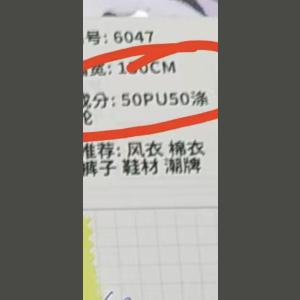 号: 6047
幅宽: 1 0CM
成分: 50PU50涤
纶
推荐: 风衣 棉衣
裤子 鞋材 潮牌